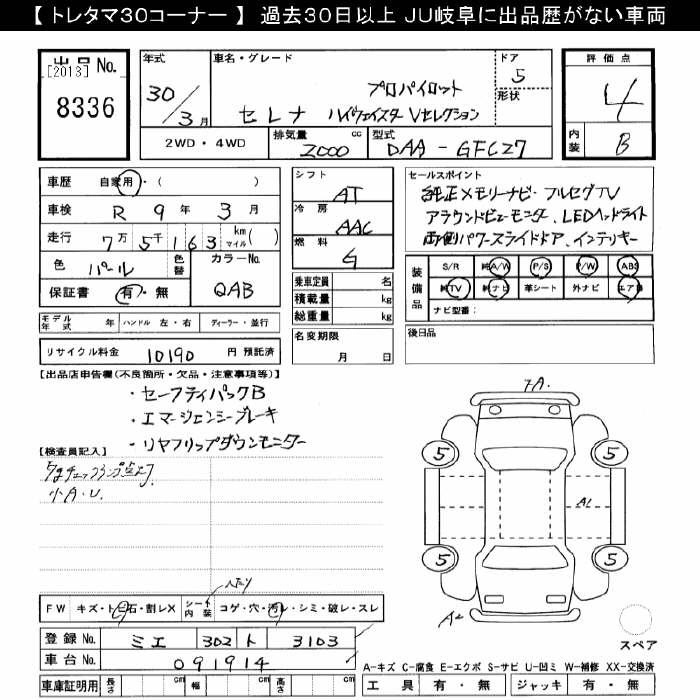 【 トレタマ30コーナー 】 過去30日以上 JU岐阜に出品歴がない車両
出品 No.
[2013]
8336
年式
30/3月
車名・グレード
プロパイロット
セレナ ハイウェイスターVセレクション
ドア
5
形状
評価点
4
内装
B
2WD・4WD
排気量 2000 cc
型式 DAA-GFC27
車歴 自家用・( )
車検 R 9年 3月
走行 7万5千163 km マイル( )
色 パール 色替 カラーNo. QAB
保証書 有・無
シフト AT
冷房 AAC
燃料 G
乗車定員 名
積載量 kg
総重量 kg
セールスポイント
純正メモリーナビ・フルセグTV
アラウンドビューモニタ、LEDヘッドライト
両側パワースライドドア、インテリキー
装備品
S/R 純A/W P/S P/W ABS
純TV 純ナビ 革シート 外ナビ エアB
ナビ型番:
モデル年式 年 ハンドル 左・右 ディーラー・並行
名変期限 月 日
後日品
リサイクル料金 10190 円 預託済
【出品店申告欄(不良箇所・欠品・注意事項等)】
・セーフティパックB
・エマージェンシーブレーキ
・リヤフリップダウンモニター
【検査員記入】
小A・U.
7A.
5 5
A1
5 5
A2
FW キズ・ト 石・割レX シート内装 コゲ・穴・汚レ・シミ・破レ・スレ
登録 No. ミエ 302 ト 3103
車台 No. 091914
車庫証明用 長さ cm 幅 cm 高さ cm
スペア
A-キズ C-腐食 E-エクボ S-サビ U-凹ミ W-補修 XX-交換済
工具 有・無 ジャッキ 有・無